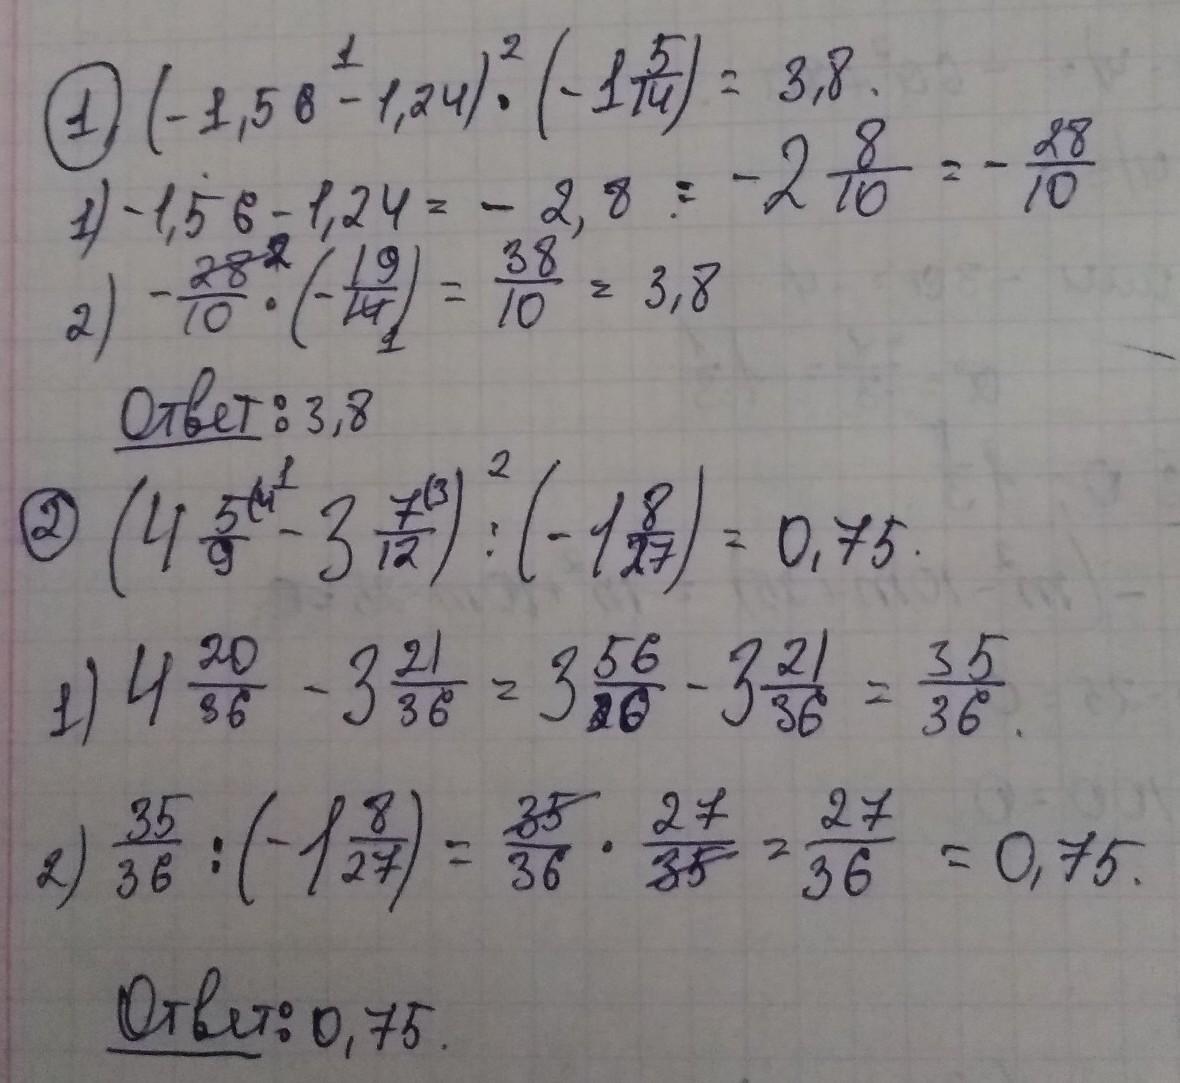 1) (-1,56 - 1,24) · (-1 5/14) = 3,8.
1) -1,56 - 1,24 = - 2,8 = -2 8/10 = - 28/10
2) - 28/10 · (- 19/14) = 38/10 = 3,8
Ответ: 3,8
2 (4 5/9 - 3 7/12) : (-1 8/27) = 0,75.
1) 4 20/36 - 3 21/36 = 3 56/36 - 3 21/36 = 35/36.
2) 35/36 : (-1 8/27) = 35/36 · 27/35 = 27/36 = 0,75.
Ответ: 0,75.